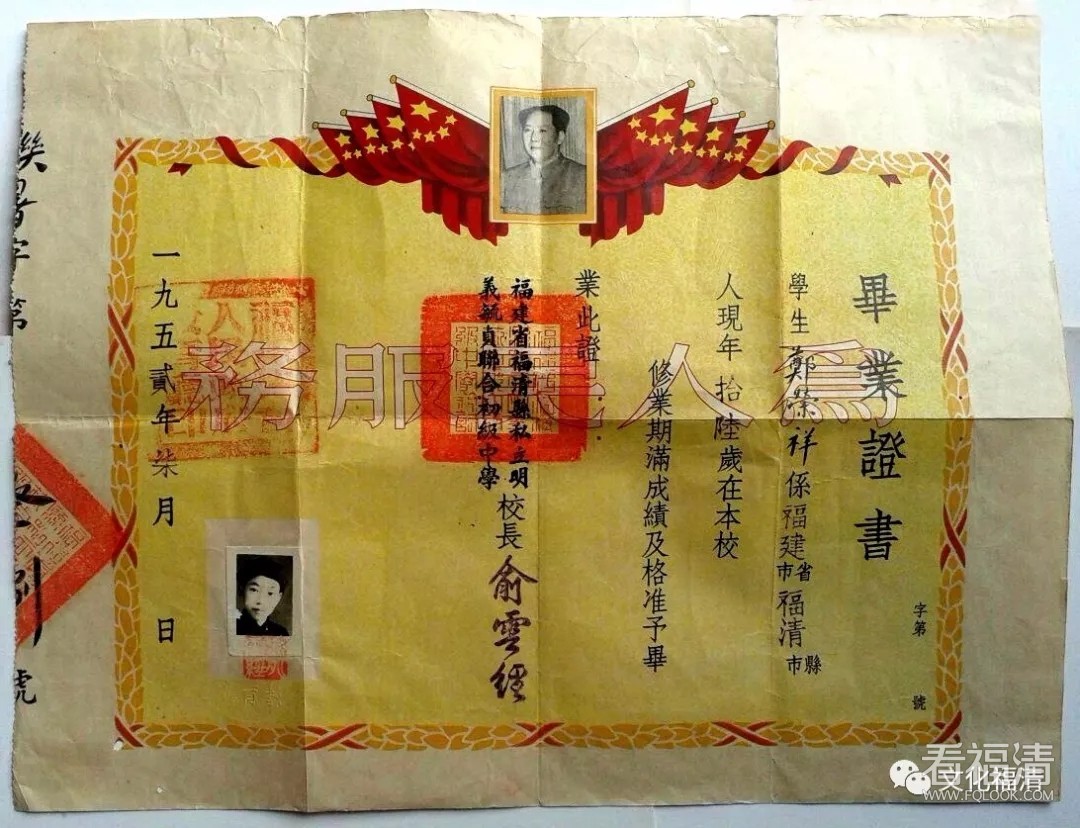 畢業證書
字第 號
學生鄭榮祥係福建省市福清縣市
人現年拾陸歲在本校
修業期滿成績及格准予畢
業此證
福建省福清縣私立明
義毓貞聯合初級中學
校長俞雲經
一九五貳年柒月 日
為人民服務
字第
號
看福清
文化福清
WWW.FQLOOK.COM